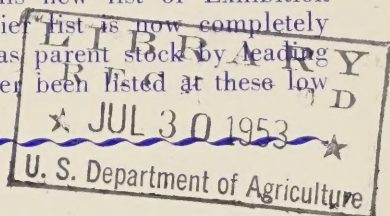 this new list of Exhibition
ief list is now completely
as parent stock by leading
er been listed at these low
LIBRARY
RECEIVED
★ JUL 30 1953 ★
U. S. Department of Agriculture